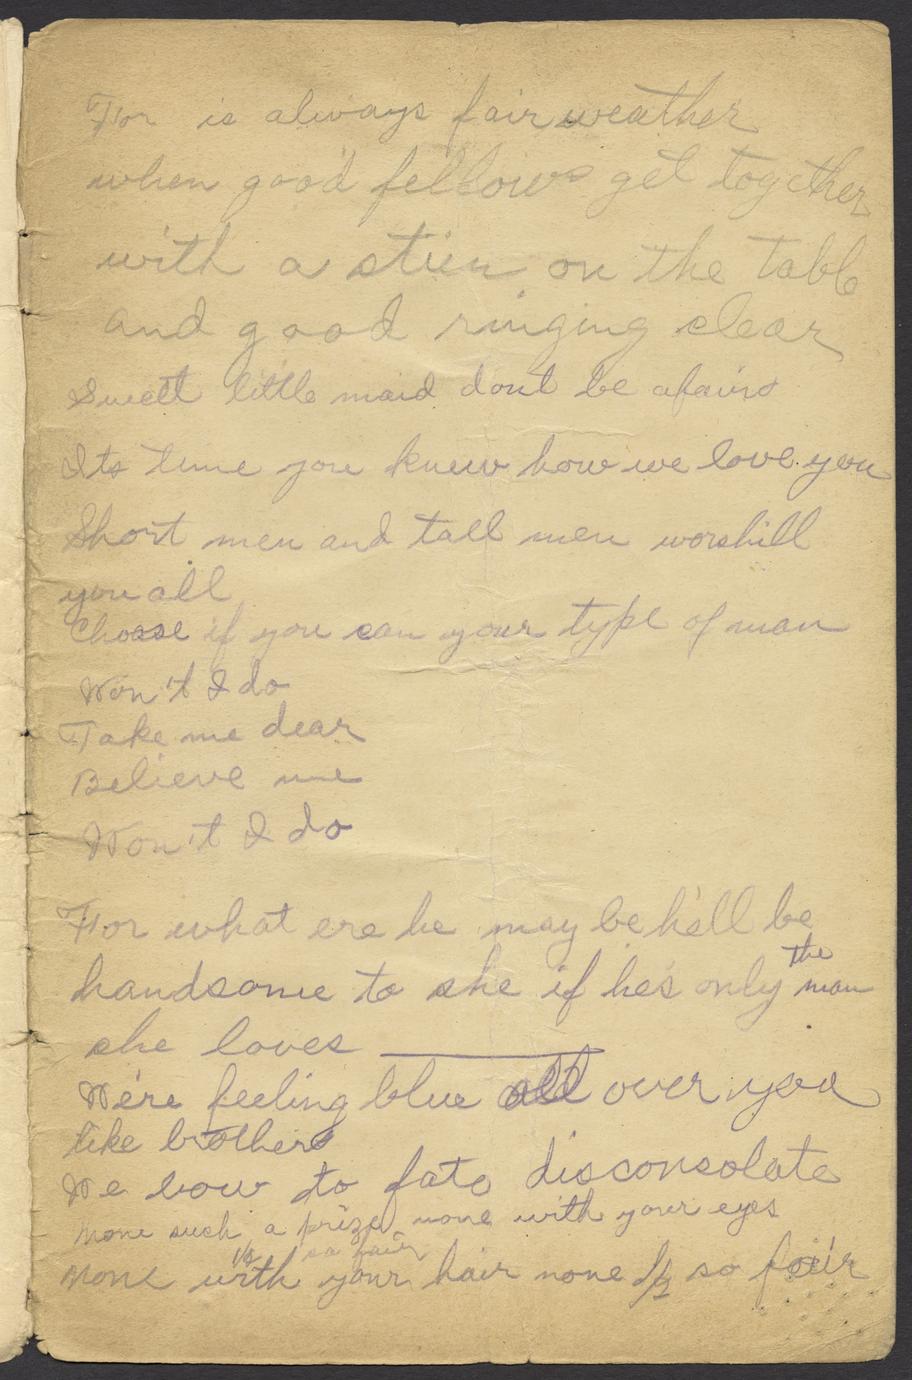 For is always fair weather
when good fellows get together
with a stien on the table
and good ringing clear
Sweett little maid dont be afaird
Its time you knew how we love you
Short men and tall men worshill
you all
Choase if you can your type of man
Won't I do
Take me dear
Believe me
Won't I do
For what ere he may be he'll be
handsome to she if he's only the man
she loves
We're feeling blue all over you
like brothers
We bow to fate disconsolate
None such a prize none with your eyes
1/2 so fair
None with your hair none 1/2 so fair